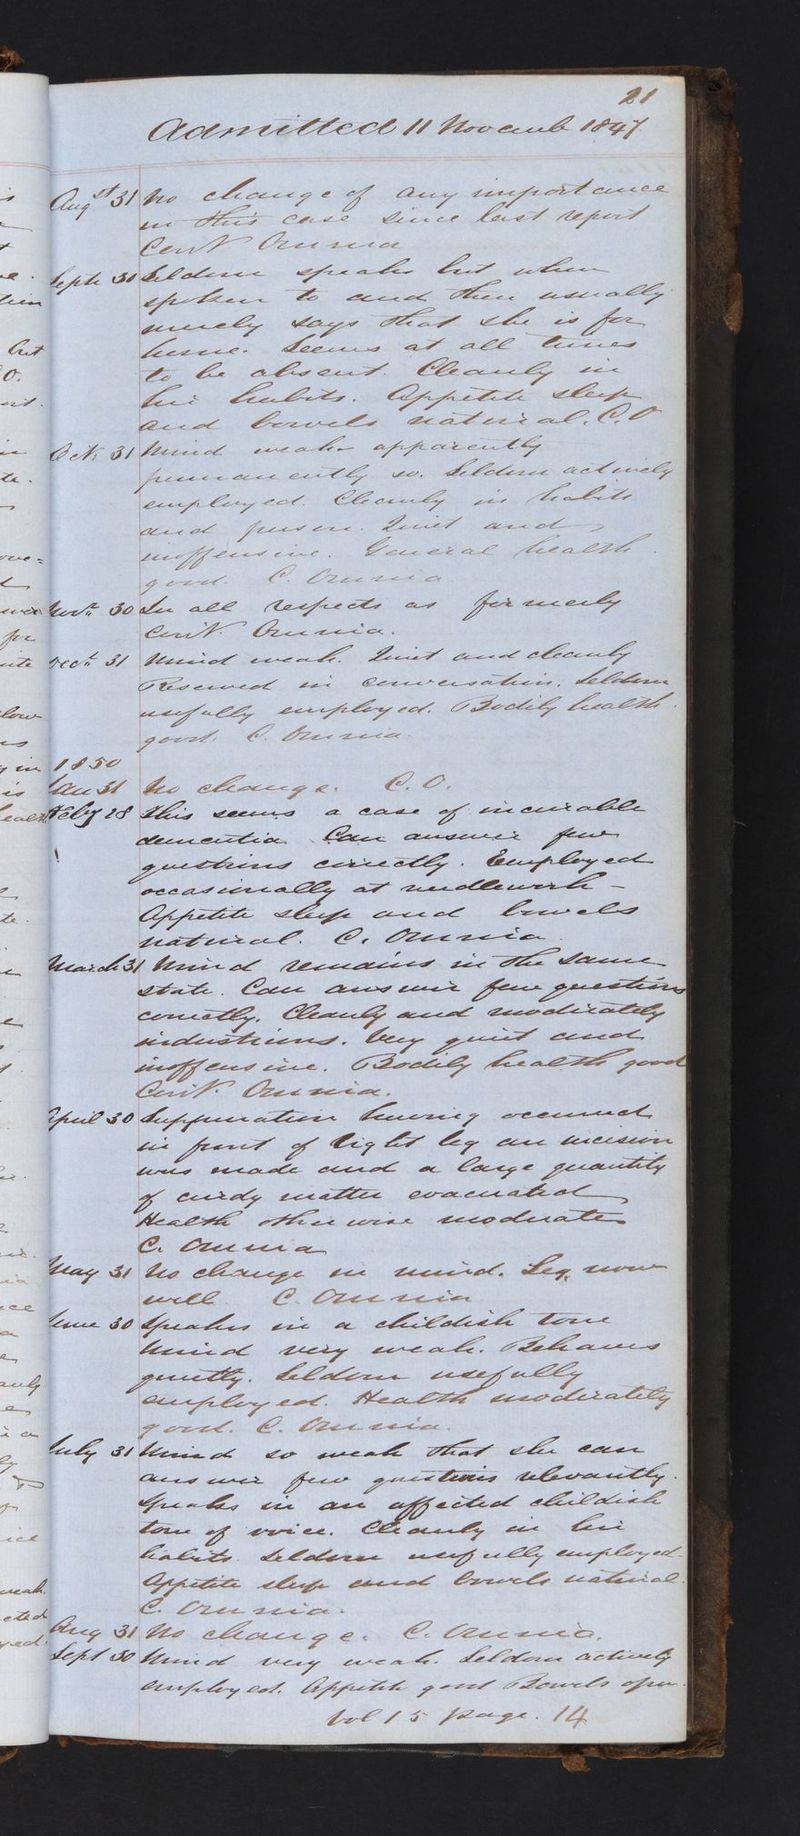 21
Admitted 11 Novemb 1847
Augst 31 No change of any importance
in this case since last report
Cont Omnia
Septr 30 Seldom speaks but when
spoken to and then usually
merely says that she is for
home. Seems at all times
to be absent. Cleanly in
her habits. Appetite sleep
and bowels natural. C.O
Oct. 31 Mind weak apparently
permanently so. Seldom actively
employed. Cleanly in habits
and person. Quiet and
inoffensive. General health
good. C. Omnia
Novr 30 In all respects as formerly
Cont. Omnia.
Decr 31 Mind weak. Quiet and cleanly
Reserved in conversation. Seldom
usefully employed. Bodily health
good. C. Omnia.
1850
Jan 31 No change. C.O.
Feby 28 This seems a case of incurable
dementia. Can answer few
questions correctly. Employed
occasionally at needlework -
Appetite sleep and bowels
natural. C. Omnia.
March 31 Mind remains in the same
state. Can answer few questions
correctly. Cleanly and moderately
industrious. Very quiet and
inoffensive. Bodily health good
Cont. Omnia.
April 30 Suppuration having occurred
in front of right leg an incision
was made and a large quantity
of curdy matter evacuated
Health otherwise moderate
C. Omnia
May 31 No change in mind. Leg now
well C. Omnia
June 30 Speaks in a childish tone
Mind very weak. Behaves
quietly. Seldom usefully
employed. Health moderately
good. C. Omnia.
July 31 Mind so weak that she can
answer few questions relevantly.
Speaks in an affected childish
tone of voice. Cleanly in her
habits. Seldom usefully employed.
Appetite sleep and bowels natural.
C. Omnia.
Aug 31 No change. C. Omnia.
Sept 30 Mind very weak. Seldom actively
employed. Appetite good Bowels open.
Vol 15 page. 14